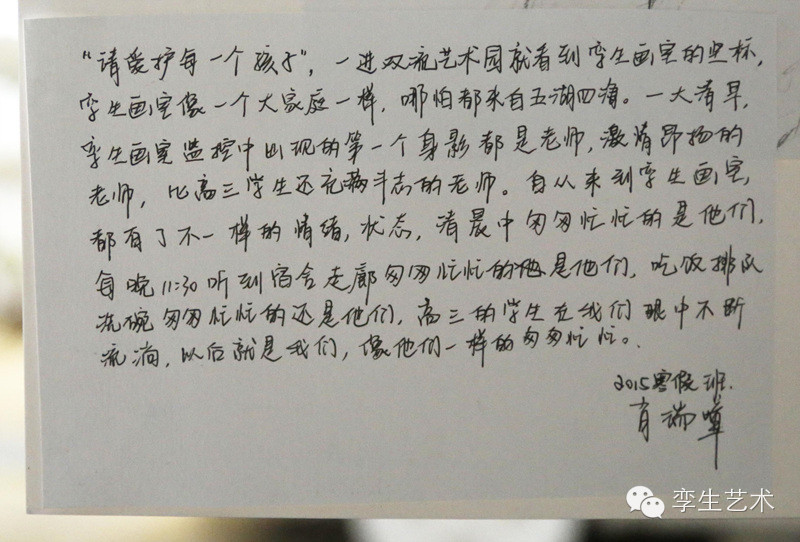 “请爱护每一个孩子”，一进双流艺术园就看到孪生画室的坐标，
孪生画室像一个大家庭一样，哪怕都来自五湖四海。一大清早，
孪生画室监控中出现的第一个身影都是老师，激情昂扬的
老师，比高三学生还充满斗志的老师。自从来到孪生画室，
都有了不一样的情绪，状态，清晨中匆匆忙忙的是他们，
每晚11:30听到宿舍走廊匆匆忙忙的也是他们，吃饭排队
洗碗匆匆忙忙的还是他们，高三的学生在我们眼中不断
流淌，以后就是我们，像他们一样的匆匆忙忙。
2015寒假班.
肖瑞
孪生艺术